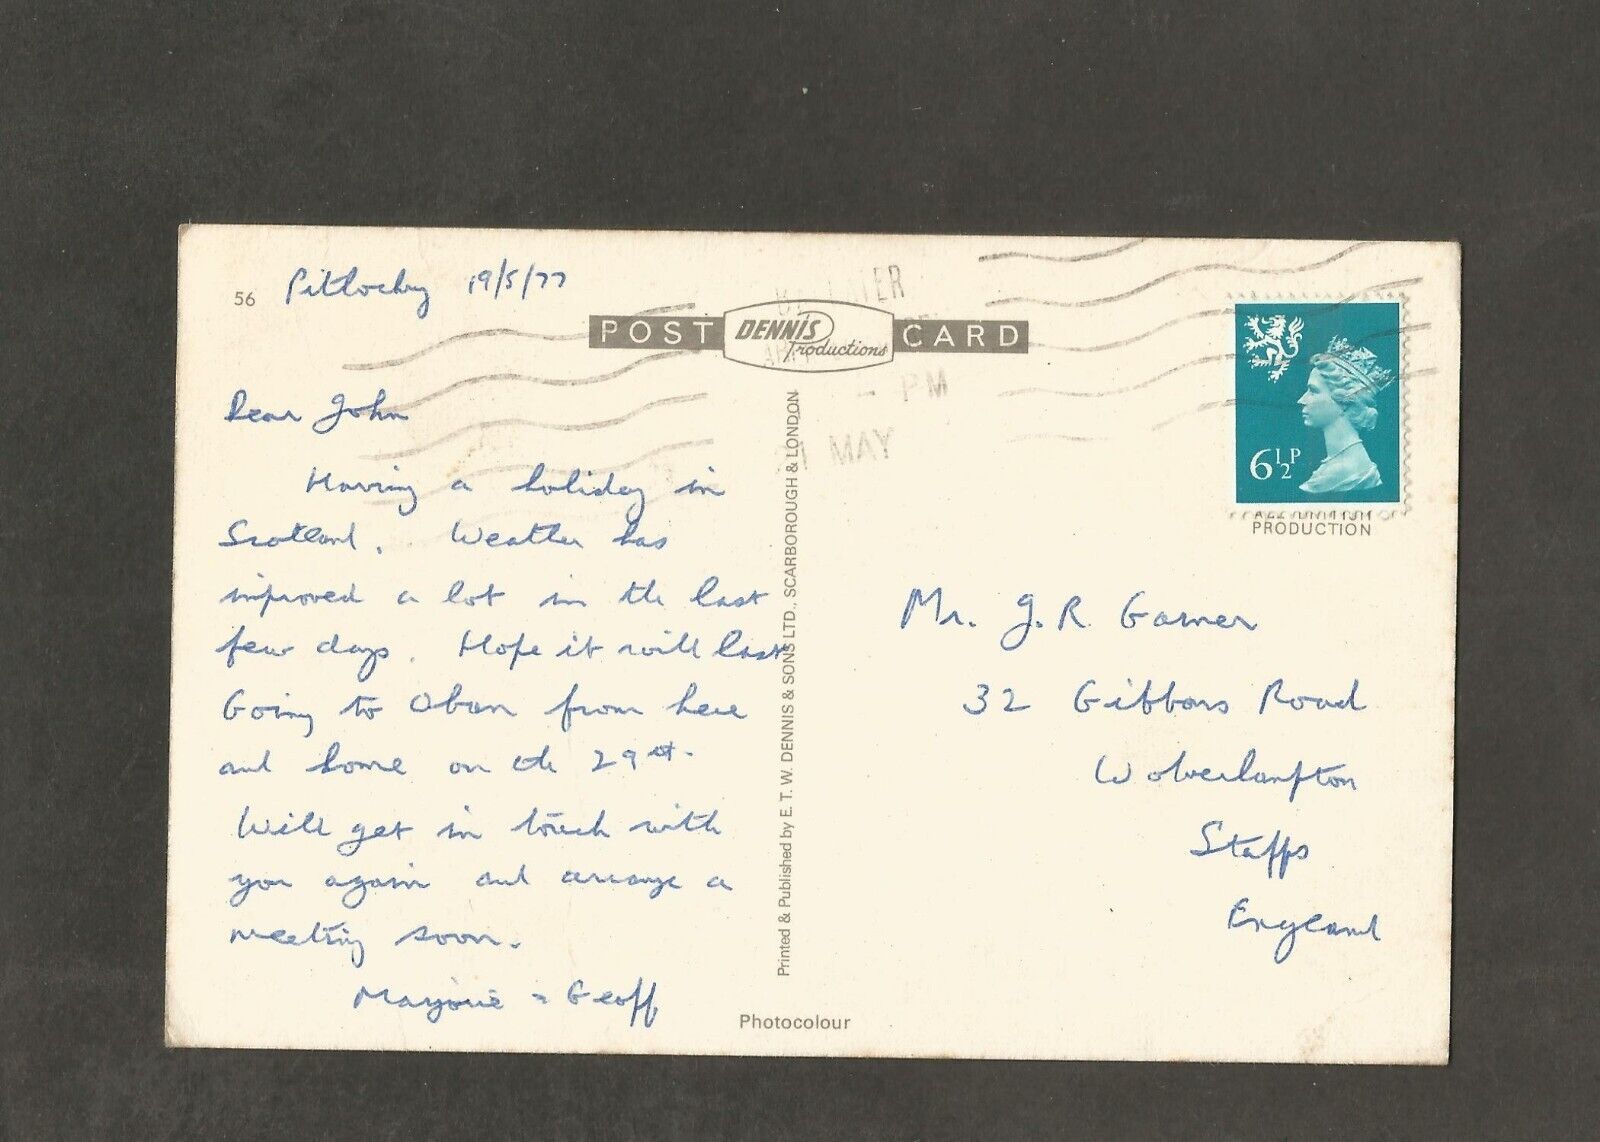 56
Pitlochry 19/5/77
POST DENNIS Productions CARD
PM
21 MAY
6½P
PRODUCTION
Dear John
Having a holiday in
Scotland. Weather has
improved a lot in the last
few days. Hope it will last
Going to Oban from here
and home on the 29st.
Will get in touch with
you again and arrange a
meeting soon.
Marjorie & Geoff
Printed & Published by E. T. W. DENNIS & SONS LTD., SCARBOROUGH & LONDON
Photocolour
Mr. J. R. Garner
32 Gibbons Road
Wolverhampton
Staffs
England